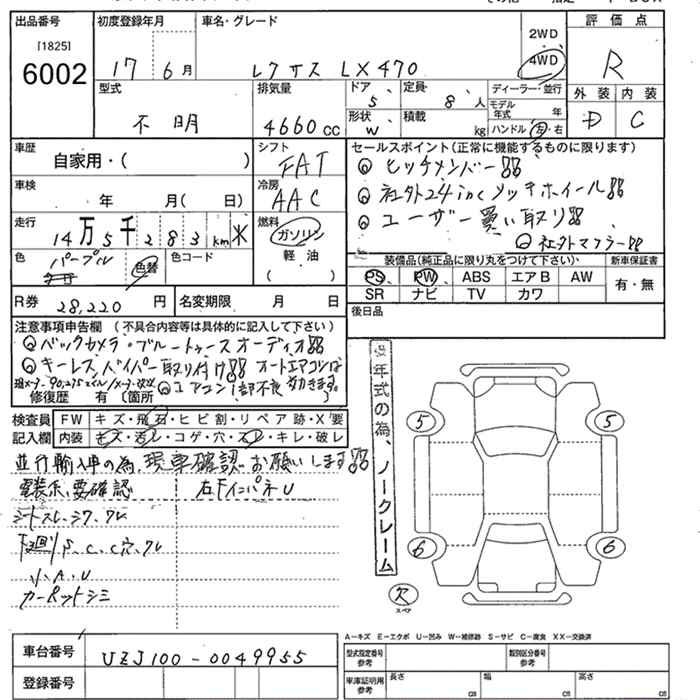 出品番号
[1825]
6002
初度登録年月
17 6月
車名・グレード
レクサス LX470
2WD
4WD
評価点
R
外装 内装
D C
型式
不明
排気量
4660cc
ドア
5
定員
8人
形状
W
積載
kg
ディーラー・並行
モデル年式 年
ハンドル 左・右
車歴
自家用・( )
シフト
FAT
車検
年 月( 日)
冷房
AAC
走行
14万5千283km
燃料
ガソリン
軽油
( )
色
パープル
色替
色コード
R券 28,220円
名変期限 月 日
セールスポイント(正常に機能するものに限ります)
ヒッチメンバー
社外24incメッキホイール
ユーザー買い取り
社外マフラー
装備品(純正品に限り丸をつけて下さい)
新車保証書
PS PW ABS エアB AW
SR ナビ TV カワ
有・無
後日品
注意事項申告欄 (不具合内容等は具体的に記入して下さい)
バックカメラ・ブルートゥースオーディオ
キーレス、バイパー取り付け オートエアコンは
エアコン1部不良 効きます。
修復歴 有 〔箇所
検査員記入欄
FW キズ・飛石・ヒビ割・リペア跡・X要
内装 キズ・汚レ・コゲ・穴・スレ・キレ・破レ
並行輸入車の為、現車確認お願いします
電装系、要確認
右FインパネU
シートスレ、シワ、クレ
下廻りS、C、C穴、クレ
小、A、U
カーペットシミ
年式の為、ノークレーム
5 5
6 6
欠
スペア
A−キズ E−エクボ U−凹み W−補修跡 S−サビ C−腐食 XX−交換済
車台番号
UZJ100-0049955
登録番号
型式指定番号 参考
類別区分番号 参考
車庫証明用 参考
長さ cm
幅 cm
高さ cm